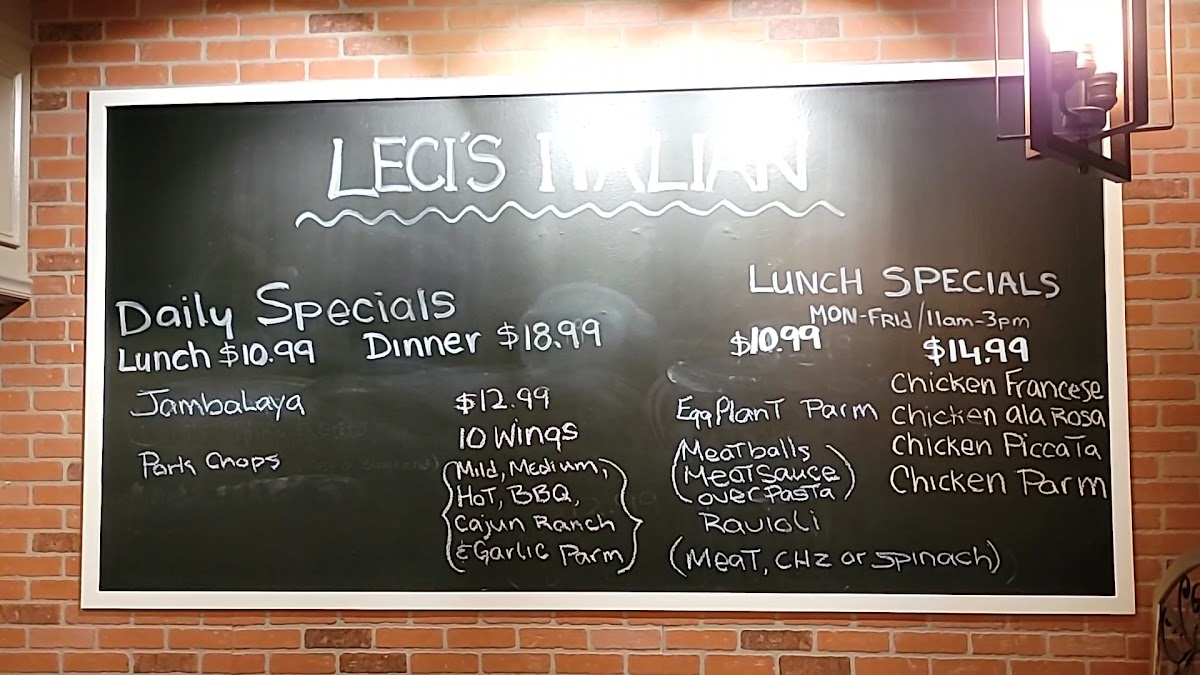 LECI'S ITALIAN
Daily Specials
Lunch $10.99 Dinner $18.99
Jambalaya
Pork Chops
$12.99
10 Wings
(Mild, Medium,
Hot, BBQ,
Cajun Ranch
& Garlic Parm)
LUNCH SPECIALS
MON-FRID/11am-3pm
$10.99
EggPlant Parm
(Meatballs
Meat Sauce
over Pasta)
Ravioli
(Meat, CHZ or Spinach)
$14.99
Chicken Francese
Chicken ala Rosa
Chicken Piccata
Chicken Parm